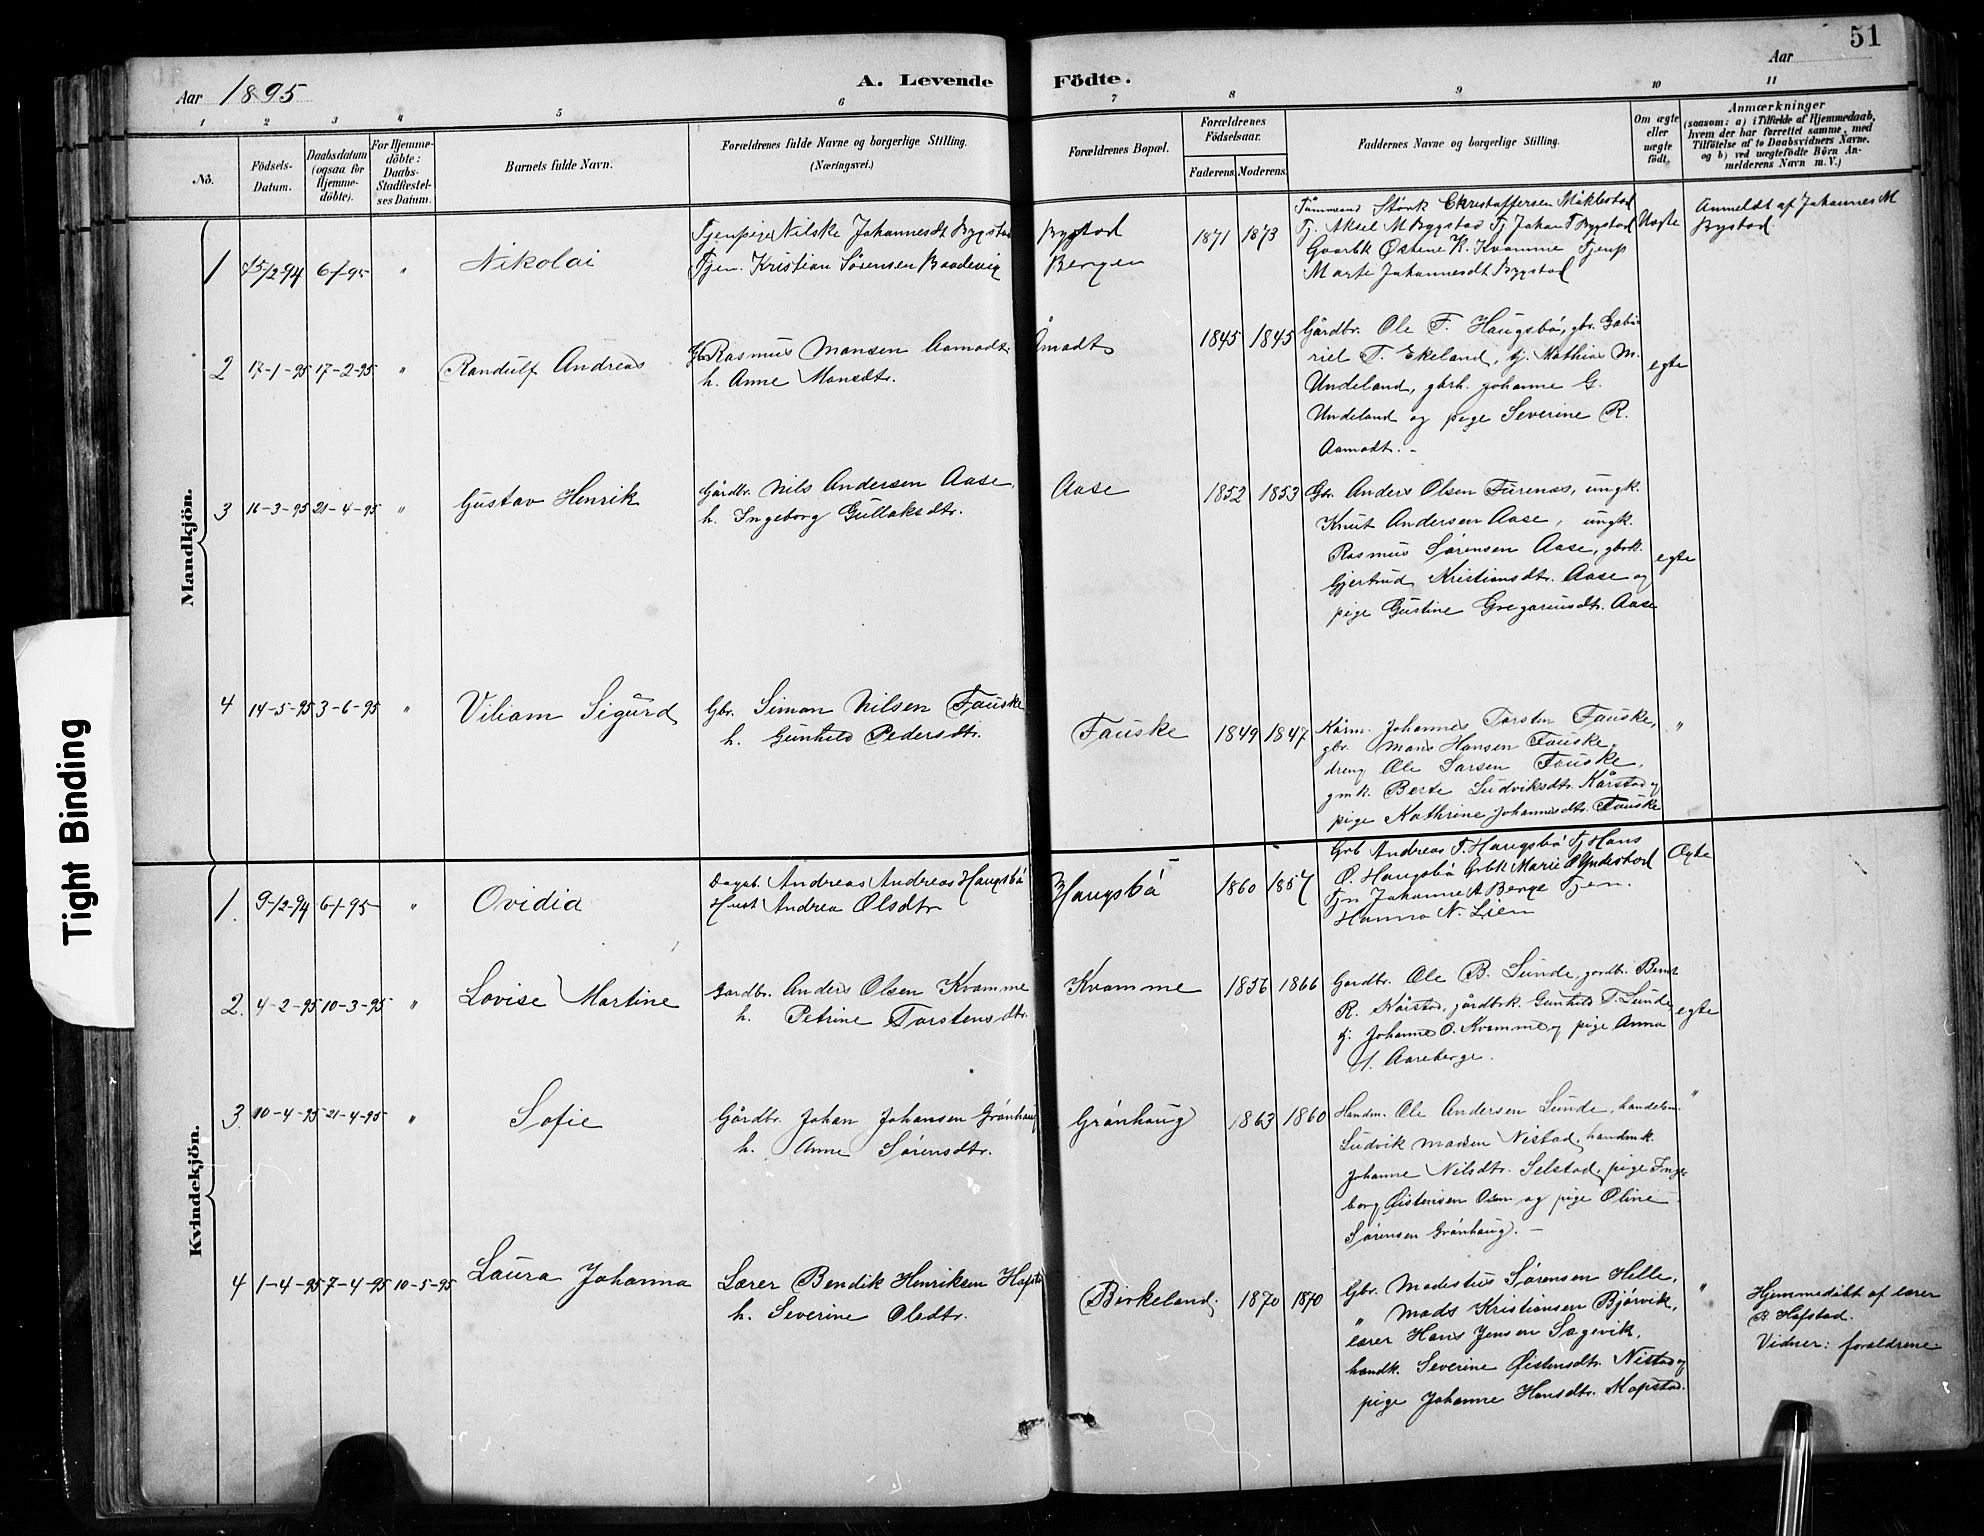 51
Aar 1895
A. Levende Födte.
Aar
1 2 3 4 5 6 7 8 9 10 11
No.
Födsels-Datum.
Daabsdatum (ogsaa for Hjemmedöbte).
For Hjemmedöbte: Daabs-Stadfæstelses Datum.
Barnets fulde Navn.
Forældrenes fulde Navne og borgerlige Stilling.
(Næringsvei.)
Forældrenes Bopæl.
Forældrenes Födselsaar.
Faderens. Moderens.
Faddernes Navne og borgerlige Stilling.
Om ægte eller uægte födt.
Anmærkninger
(saasom: a) i Tilfælde af Hjemmedaab, hvem der har forrettet samme, med Tilföielse af to Daabsvidners Navne, og b) ved uægtefödte Börn Anmelderens Navn m. V.)
Mandkjön.
1 15/12-94 6/1-95 " Nikolai
Tjenpige Nilske Johannesdt Bygstad
Tjen. Kristian Sørensen Baadevig
Bygstad
Bergen
1871 1873
Størk Christoffersen Måklestad
Tj. Aksel M Bygstad Tj Johan T Bygstad
Gaarbk Østene K. Kvamme Tjenp
Marte Johannesdt Bygstad
Uægte
Anmeldt af Johannes M
Bystad
2 17-1-95 17-2-95 " Randulf Andreas
Gbr Rasmus Monsen Aamodt
h. Anne Monsdtr.
Åmodt
1845 1845
Gårdbr. Ole F. Haugsbø, gbr. Gabriel T. Ekeland, tj. Mathias M.
Undeland, gbrh. Johanne G.
Undeland og pige Severine R.
Aamodt. -
egte
3 16-3-95 21-4-95 " Gustav Henrik
Gårdbr. Nils Andersen Aase,
h. Ingeborg Gullaksdtr.
Aase
1852 1853
Gbr. Anders Olsen Furenæs, ungk.
Knut Andersen Aase, ungk.
Rasmus Sørensen Aase, gbrk.
Gjertrud Kristiansdtr. Aase og
pige Gurtine Gregoriusdtr. Aase
egte
4 14-5-95 3-6-95 " Viliam Sigurd
Gbr. Simon Nilsen Fauske
h. Gunhild Pedersdtr.
Fauske
1849 1847
Kårm. Johannes Torsten Fauske,
gbr. Mons Hansen Fauske,
dreng Ole Larsen Fauske,
gmk. Berte Ludviksdtr. Kårstad og
pige Kathrine Johannesdtr. Fauske
"
Kvindekjön.
1. 9-12-94 6/1-95 " Ovidia
Dagab. Andreas Andreas Haugsbø
Hust Andrea Olsdtr
Haugsbø
1860 1857
Grb Andreas T. Haugsbø Tj Hans
O. Haugsbø Grbk Marie O Yndestad
Tjn Johanne A Berge Tjen.
Hanna N. Lien
Ægte
2. 4-2-95 10-3-95 " Lovise Martine
Gardbr. Anders Olsen Kvamme
h. Petrine Torstensdtr.
Kvamme
1856 1866
Gardbr. Ole B. Sunde, gardbr. Bendt
R. Kårstad, gårdbrk. Gunhild T. Sunde,
tj. Johanne O. Kvamme og pige Anna
Aareberge.
egte
3. 10-4-95 21-4-95 " Sofie
Gårdbr. Johan Johansen Grønhaug
h. Anne Sørensdtr.
Grønhaug
1863 1860
Handm. Ole Andersen Sunde, handelsm.
Ludvik Madsen Nistad, handmk.
Johanne Nilsdtr. Selstad, pige Ingeborg Øistensen Osen og pige Oline
Sørensen Grønhaug. -
"
4 1-4-95 7-4-95 10-5-95 Laura Johanna
Lærer Bendik Henriksen Hafsta
h. Severine Olsdtr.
Birkeland.
1870 1870
Gbr. Modestus Sørensen Helle,
" Mads Kristiansen Bjørvik,
lærer Hans Jensen Sagevik,
handk. Severine Øistensdtr. Nistad og
pige Johanne Hansdtr. Mopstad.
"
Hjemmedøbt af lærer
B. Hafstad.
Vidner: forældrene
Tight Binding